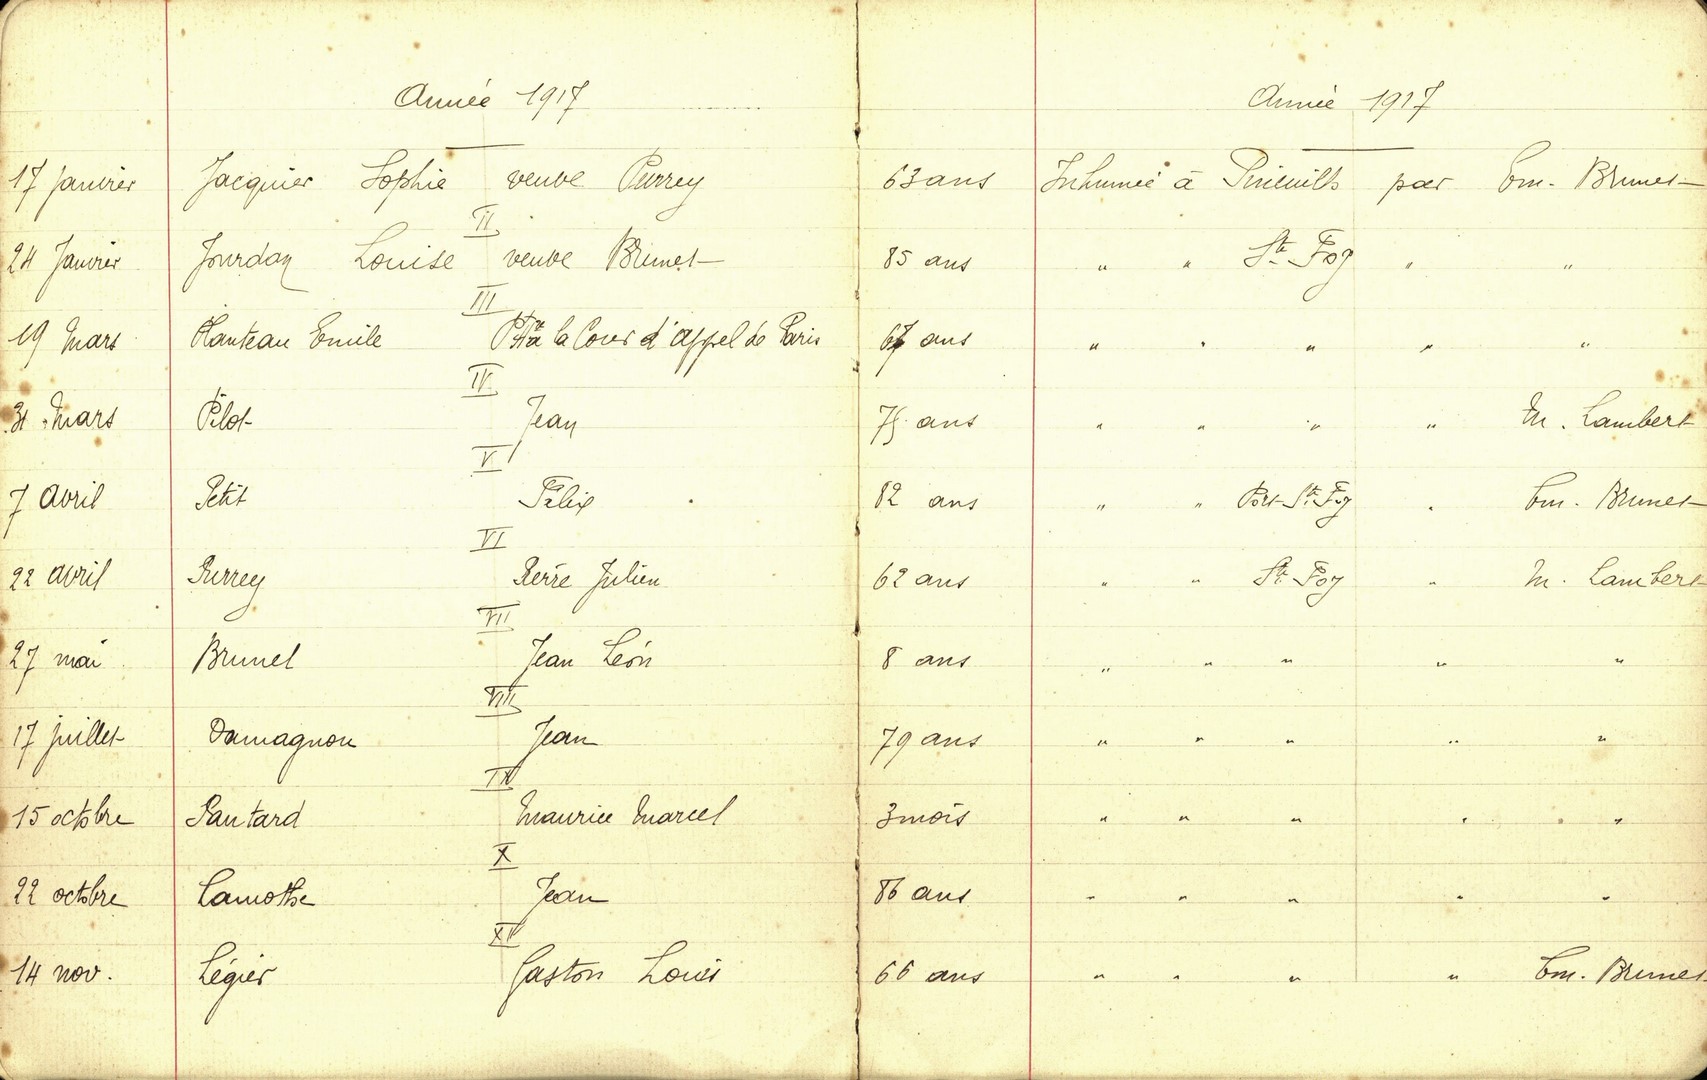 Année 1917 Année 1917
17 janvier Jacquier Sophie veuve Purrey 63 ans Inhumée à Pineuilh par Em. Brunet
II
24 Janvier Jourdan Louise veuve Brunet 85 ans " " Ste Foy " "
III
19 Mars Planteau Emile Pdt à la Cour d'appel de Paris 67 ans " " " " "
IV
31 Mars Pilot Jean 75 ans " " " " M. Lambert
V
7 avril Petit Félix 82 ans " " Port-Ste Foy " Em. Brunet
VI
22 avril Purrey Pierre Julien 62 ans " " Ste Foy " M. Lambert
VII
27 mai Brunet Jean Léon 8 ans " " " " "
VIII
17 juillet Damagnon Jean 79 ans " " " " "
IX
15 octobre Pautard Maurice Marcel 3 mois " " " " "
X
22 octobre Lamothe Jean 86 ans " " " " "
XI
14 nov. Légier Gaston Louis 66 ans " " " " Em. Brunet